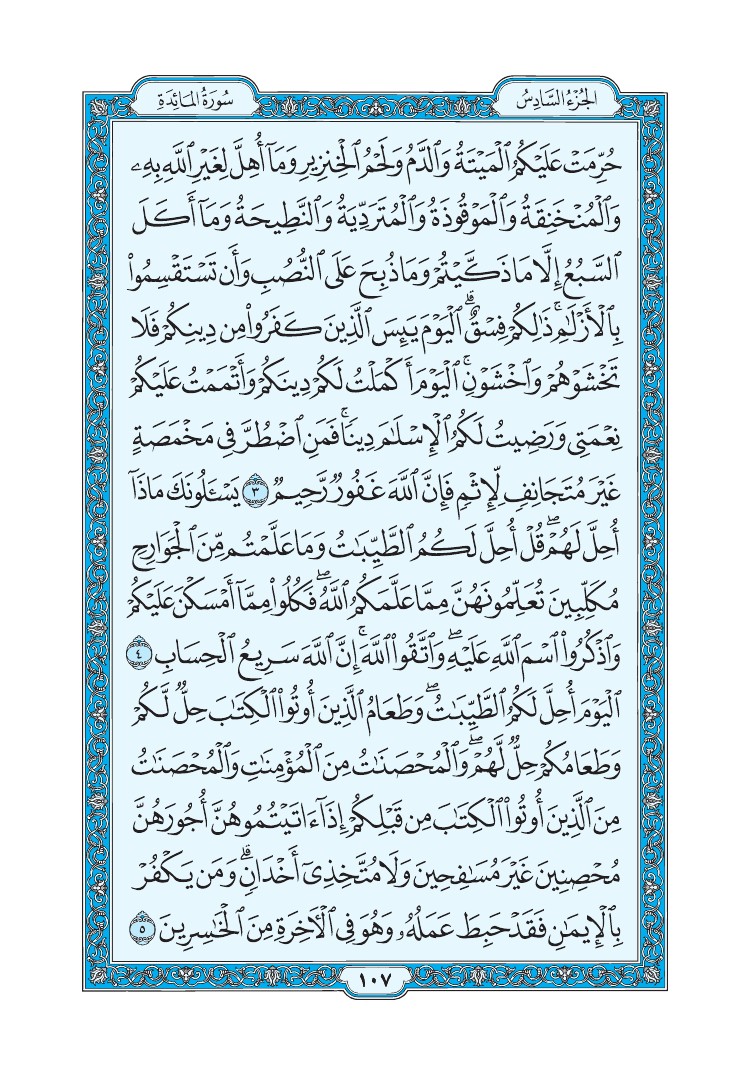 الجُزْءُ السَّادِسُ
سُورَةُ المَائِدَةِ
حُرِّمَتْ عَلَيْكُمُ ٱلْمَيْتَةُ وَٱلدَّمُ وَلَحْمُ ٱلْخِنزِيرِ وَمَآ أُهِلَّ لِغَيْرِ ٱللَّهِ بِهِۦ
وَٱلْمُنْخَنِقَةُ وَٱلْمَوْقُوذَةُ وَٱلْمُتَرَدِّيَةُ وَٱلنَّطِيحَةُ وَمَآ أَكَلَ
ٱلسَّبُعُ إِلَّا مَا ذَكَّيْتُمْ وَمَا ذُبِحَ عَلَى ٱلنُّصُبِ وَأَن تَسْتَقْسِمُوا۟
بِٱلْأَزْلَـٰمِ ۚ ذَٰلِكُمْ فِسْقٌ ۗ ٱلْيَوْمَ يَئِسَ ٱلَّذِينَ كَفَرُوا۟ مِن دِينِكُمْ فَلَا
تَخْشَوْهُمْ وَٱخْشَوْنِ ۚ ٱلْيَوْمَ أَكْمَلْتُ لَكُمْ دِينَكُمْ وَأَتْمَمْتُ عَلَيْكُمْ
نِعْمَتِى وَرَضِيتُ لَكُمُ ٱلْإِسْلَـٰمَ دِينًا ۚ فَمَنِ ٱضْطُرَّ فِى مَخْمَصَةٍ
غَيْرَ مُتَجَانِفٍ لِّإِثْمٍ ۙ فَإِنَّ ٱللَّهَ غَفُورٌ رَّحِيمٌ ٣ يَسْـَٔلُونَكَ مَاذَآ
أُحِلَّ لَهُمْ ۖ قُلْ أُحِلَّ لَكُمُ ٱلطَّيِّبَـٰتُ ۙ وَمَا عَلَّمْتُم مِّنَ ٱلْجَوَارِحِ
مُكَلِّبِينَ تُعَلِّمُونَهُنَّ مِمَّا عَلَّمَكُمُ ٱللَّهُ ۖ فَكُلُوا۟ مِمَّآ أَمْسَكْنَ عَلَيْكُمْ
وَٱذْكُرُوا۟ ٱسْمَ ٱللَّهِ عَلَيْهِ ۖ وَٱتَّقُوا۟ ٱللَّهَ ۚ إِنَّ ٱللَّهَ سَرِيعُ ٱلْحِسَابِ ٤
ٱلْيَوْمَ أُحِلَّ لَكُمُ ٱلطَّيِّبَـٰتُ ۖ وَطَعَامُ ٱلَّذِينَ أُوتُوا۟ ٱلْكِتَـٰبَ حِلٌّ لَّكُمْ
وَطَعَامُكُمْ حِلٌّ لَّهُمْ ۖ وَٱلْمُحْصَنَـٰتُ مِنَ ٱلْمُؤْمِنَـٰتِ وَٱلْمُحْصَنَـٰتُ
مِنَ ٱلَّذِينَ أُوتُوا۟ ٱلْكِتَـٰبَ مِن قَبْلِكُمْ إِذَآ ءَاتَيْتُمُوهُنَّ أُجُورَهُنَّ
مُحْصِنِينَ غَيْرَ مُسَـٰفِحِينَ وَلَا مُتَّخِذِىٓ أَخْدَانٍ ۗ وَمَن يَكْفُرْ
بِٱلْإِيمَـٰنِ فَقَدْ حَبِطَ عَمَلُهُۥ وَهُوَ فِى ٱلْـَٔاخِرَةِ مِنَ ٱلْخَـٰسِرِينَ ٥
١٠٧